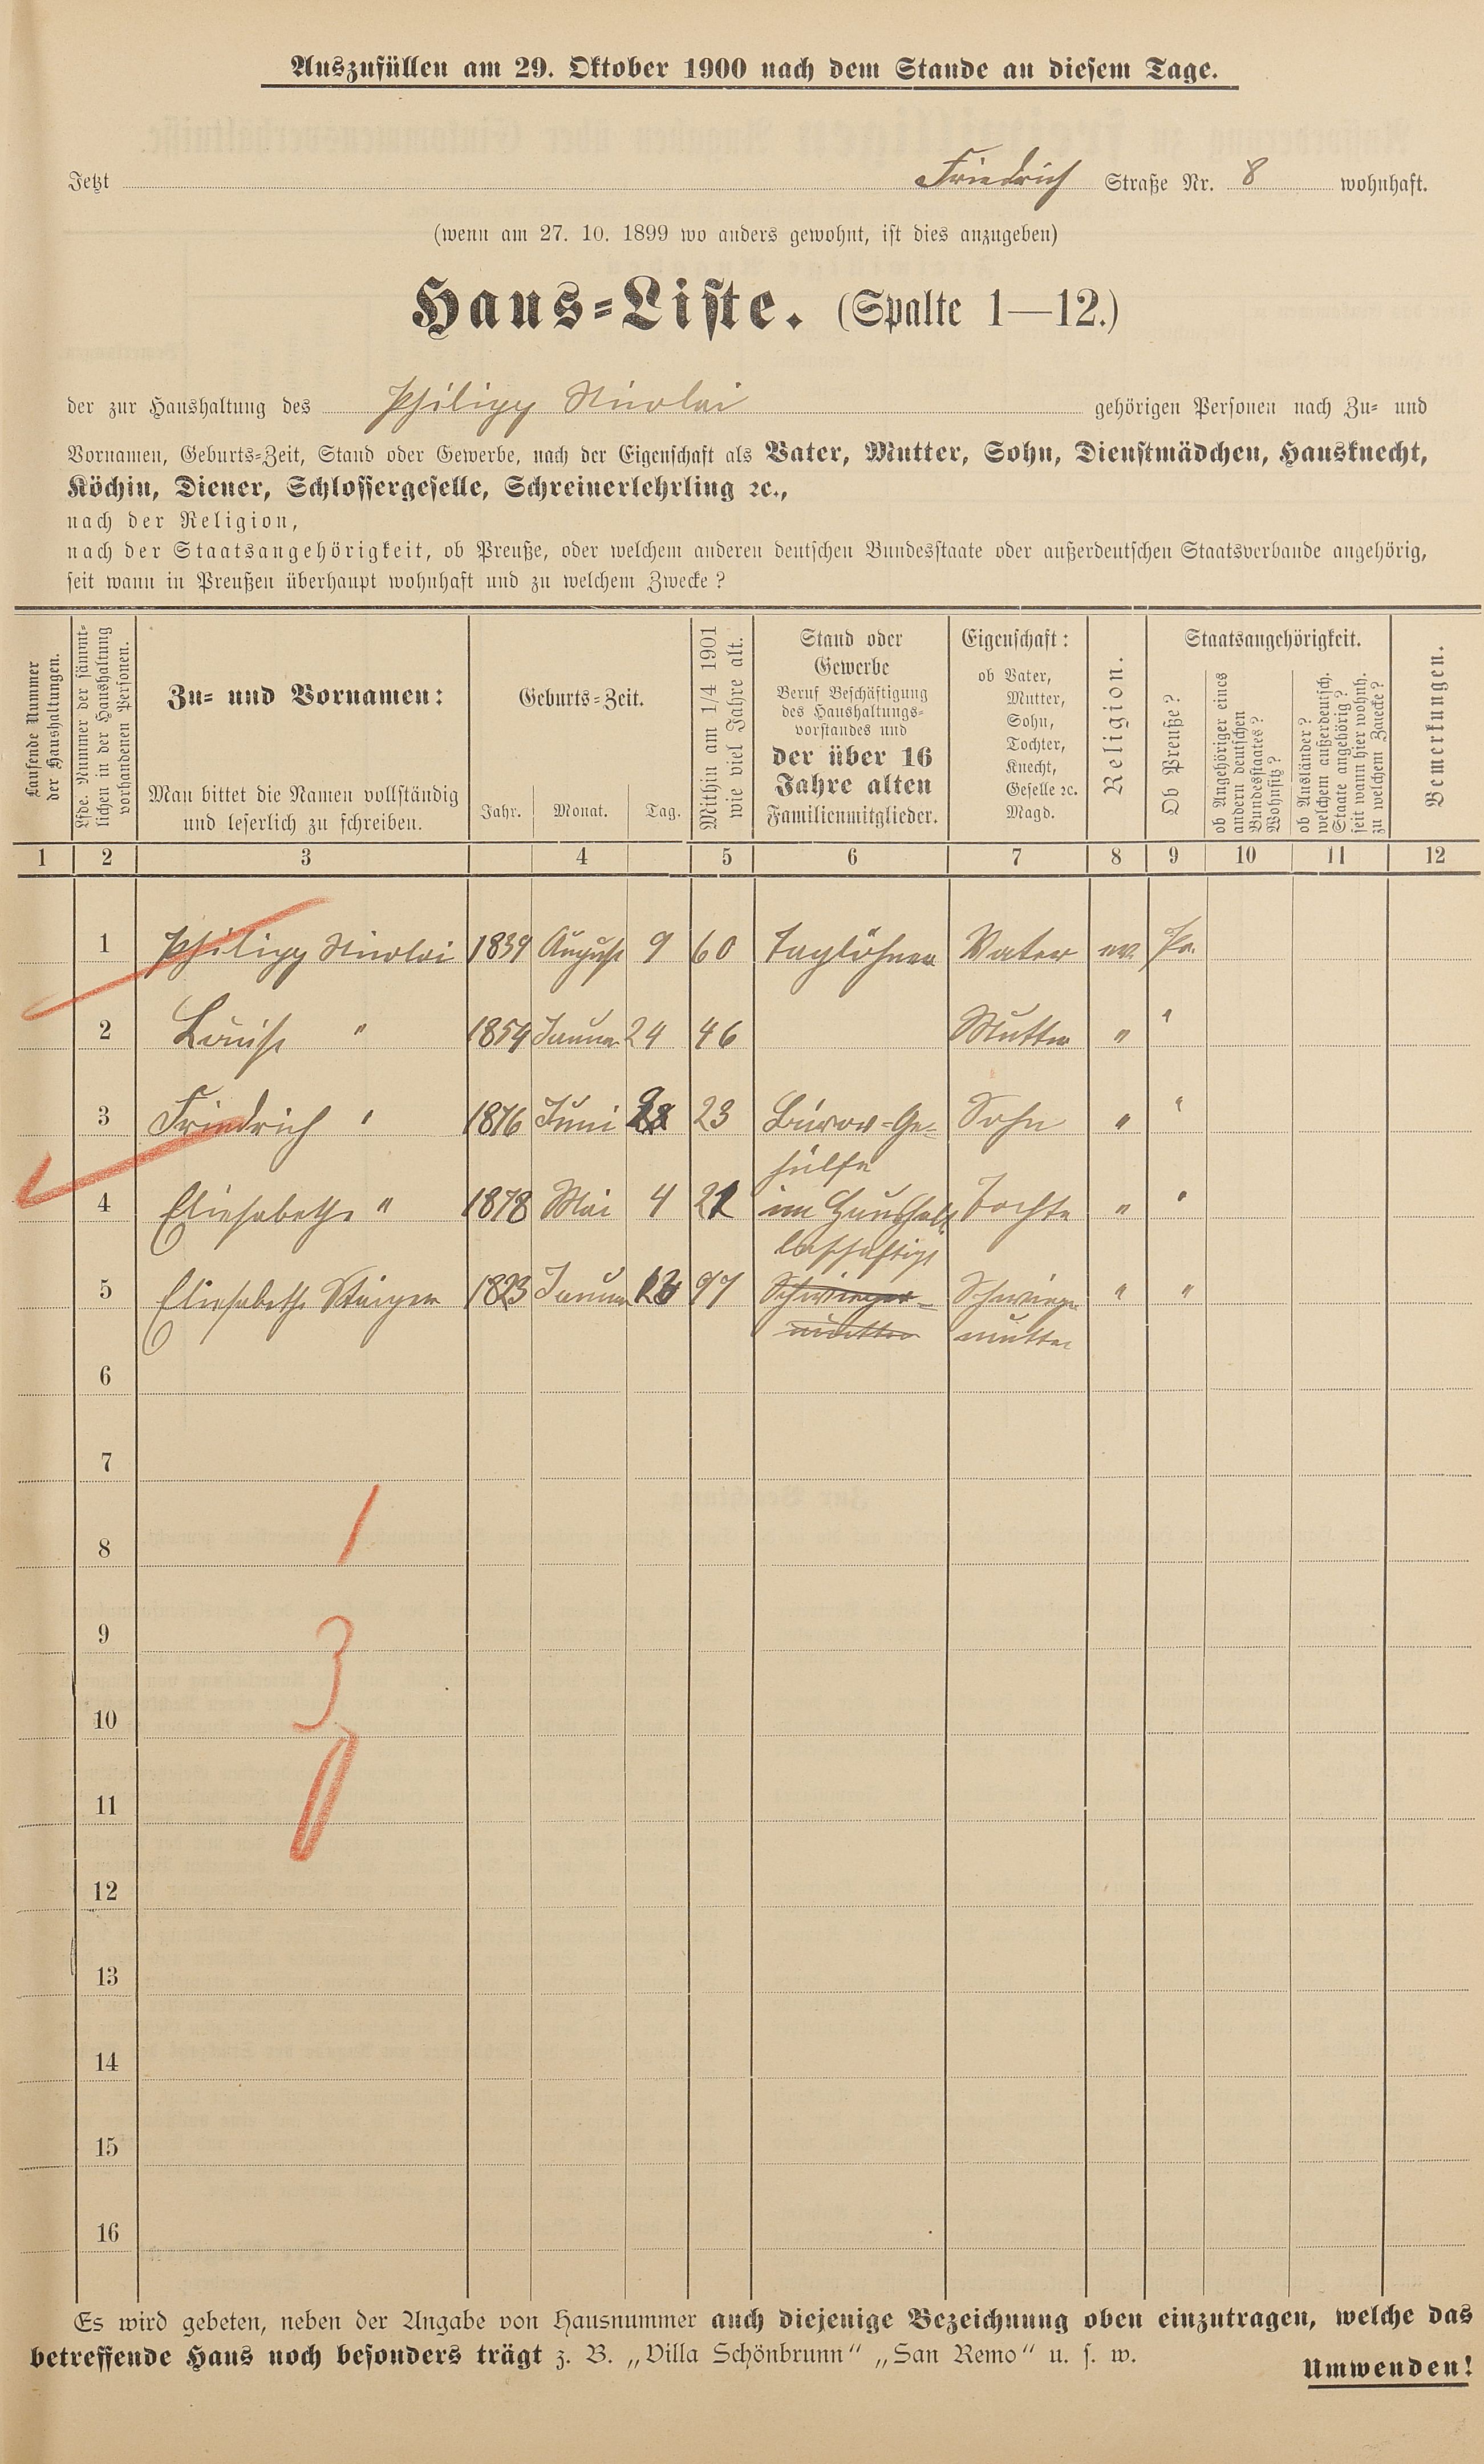 Auszufüllen am 29. Oktober 1900 nach dem Stande an diesem Tage.
Jetzt Friedrich Straße Nr. 8 wohnhaft.
(wenn am 27. 10. 1899 wo anders gewohnt, ist dies anzugeben)
Haus-Liste. (Spalte 1—12.)
der zur Haushaltung des Philipp Nicolai gehörigen Personen nach Zu- und
Vornamen, Geburts-Zeit, Stand oder Gewerbe, nach der Eigenschaft als Vater, Mutter, Sohn, Dienstmädchen, Hausknecht,
Köchin, Diener, Schlossergeselle, Schreinerlehrling ꝛc.,
nach der Religion,
nach der Staatsangehörigkeit, ob Preuße, oder welchem anderen deutschen Bundesstaate oder außerdeutschen Staatsverbande angehörig,
seit wann in Preußen überhaupt wohnhaft und zu welchem Zwecke?
Laufende Nummer
der Haushaltungen.
Lfde. Nummer der sämmt-
lichen in der Haushaltung
vorhandenen Personen.
Zu- und Vornamen:
Man bittet die Namen vollständig
und leserlich zu schreiben.
Geburts-Zeit.
Jahr. Monat. Tag.
Mithin am 1/4 1901
wie viel Jahre alt.
Stand oder
Gewerbe
Beruf Beschäftigung
des Haushaltungs-
vorstandes und
der über 16
Jahre alten
Familienmitglieder.
Eigenschaft:
ob Vater,
Mutter,
Sohn,
Tochter,
Knecht,
Geselle ꝛc.
Magd.
Religion.
Staatsangehörigkeit.
Ob Preuße?
ob Angehöriger eines
andern deutschen
Bundesstaates?
Wohnsitz?
ob Ausländer?
welchem außerdeutsch.
Staate angehörig?
seit wann hier wohnh.
zu welchem Zwecke?
Bemerkungen.
1 2 3 4 5 6 7 8 9 10 11 12
1 Philipp Nicolai 1839 August 9 60 Taglöhner Vater ev. Pr.
2 Louise " 1854 Januar 24 46 Mutter " "
3 Friedrich " 1876 Juni 23 Bürow-Ge- Sohn " "
hülfe
4 Eliesabethe " 1878 Mai 4 im Haushalt Tochter " "
beschäftigt
5 Eliesabethe 1823 Januar 77 Schwieger- Schwieger " "
mutter mutter
6
7
8
1
9
3
10
11
12
13
14
15
16
Es wird gebeten, neben der Angabe von Hausnummer auch diejenige Bezeichnung oben einzutragen, welche das
betreffende Haus noch besonders trägt z. B. „Villa Schönbrunn“ „San Remo“ u. s. w.
Umwenden!